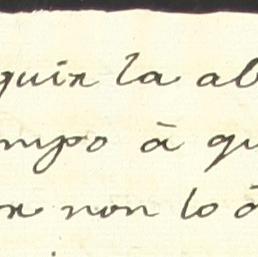 guir la ab
mpo à qu
or non lo ò